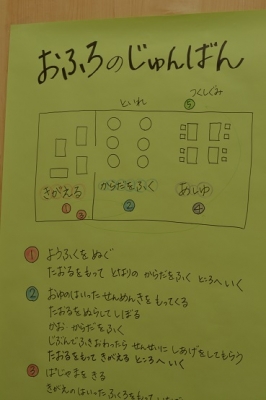 おふろのじゅんばん
といれ
つくしぐみ
⑤
きがえる
からだをふく
あしゆ
① ③
②
④
① ようふくを ぬぐ
たおるをもって となりの からだをふく ところへ いく
② おゆのはいった せんめんきを もってくる
たおるを ぬらして しぼる
かお からだをふく
じぶんで ふきおわったら せんせいに しあげをしてもらう
たおるをもって きがえる ところへ いく
③ ぱじゃまを きる
きがえの はいった ふくろをもって